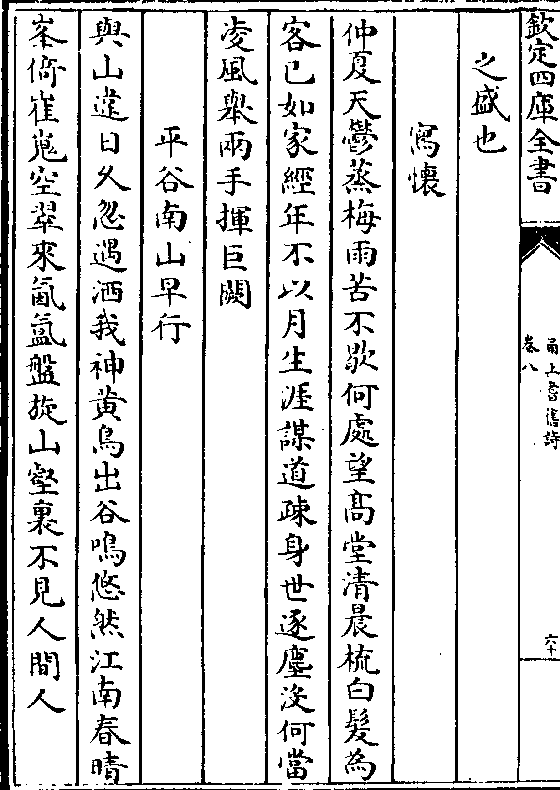 欽定四庫全書
甬上耆舊詩
卷八
六十
之盛也
寫懷
仲夏天鬱蒸梅雨苦不歇何處望髙堂清晨梳白髮為
客已如家經年不以月生涯謀道疎身世逐塵没何當
凌風舉兩手揮巨闕
平谷南山早行
與山違日久忽遇洒我神黄鳥出谷鳴悠然江南春晴
峯倚崔嵬空翠來氤氲盤旋山壑裏不見人間人